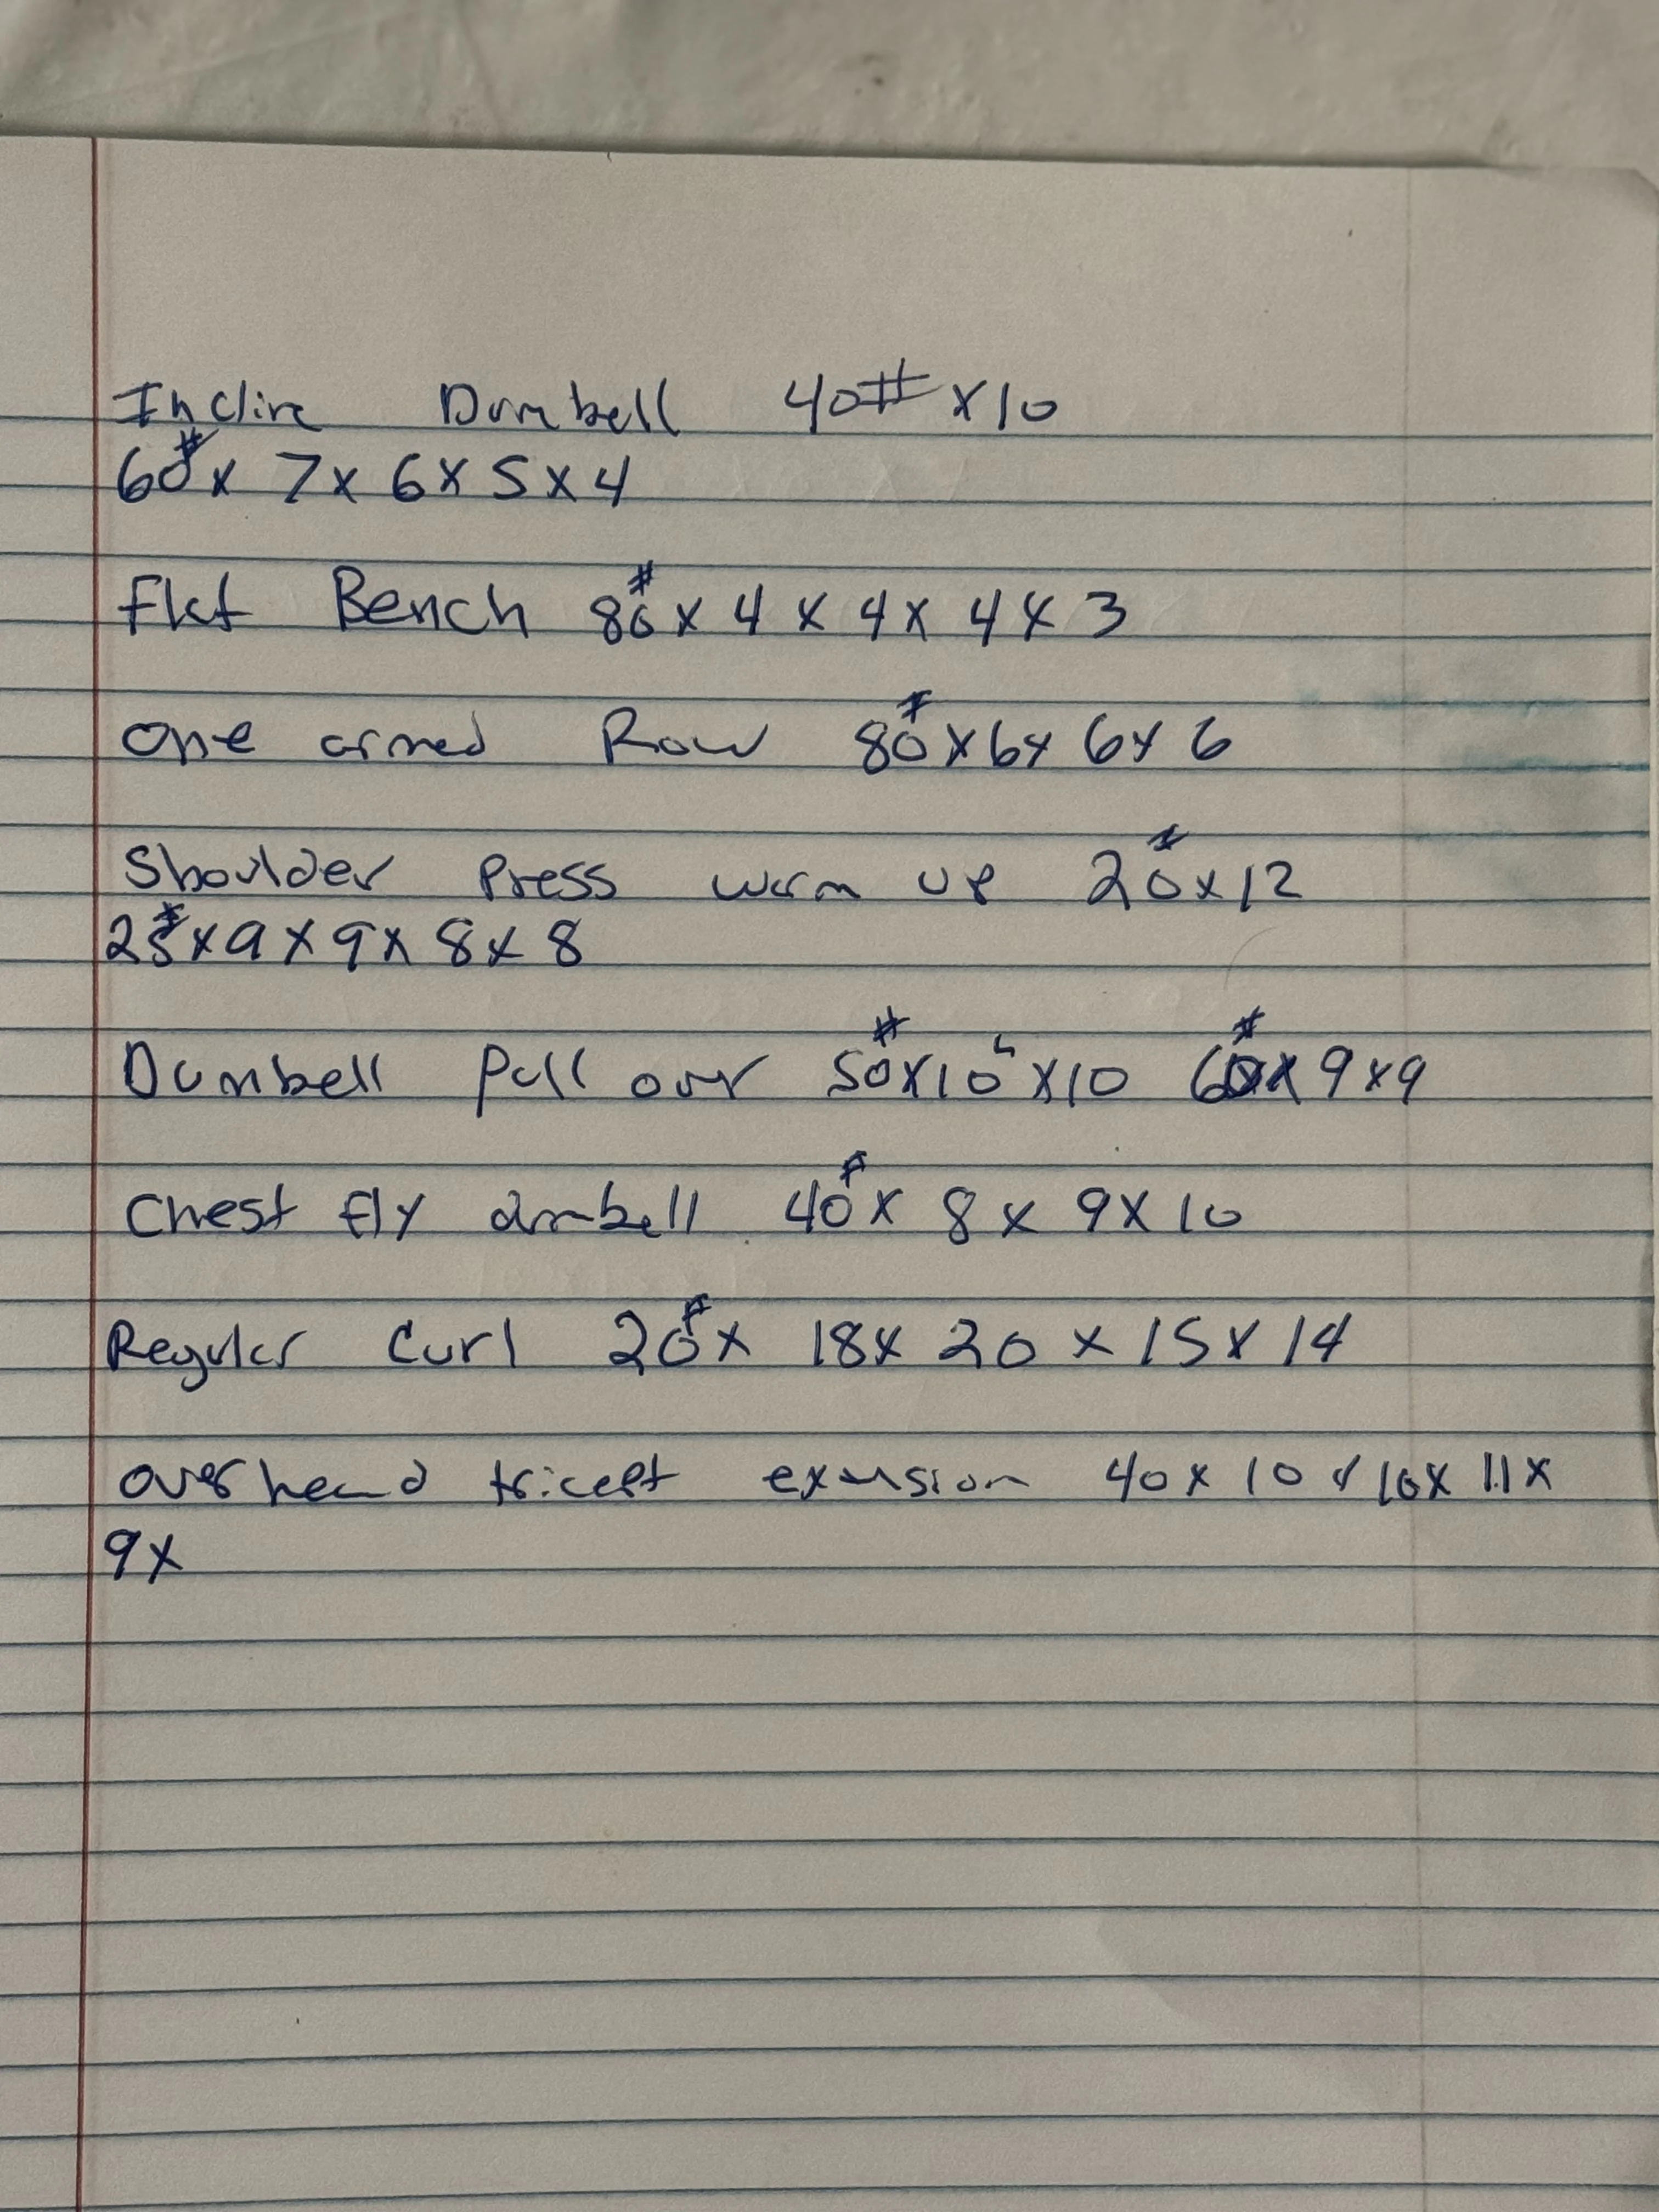 Incline Dumbell 40# x10
60# x 7x 6x 5x4
Flat Bench 80# x 4 x 4x 4x 3
One armed Row 80# x6x 6x 6
Shoulder Press warm up 20# x12
25# x9x9x 8x 8
Dumbell Pull over 50# x10 x10 60# x 9x9
Chest fly dumbell 40# x 8x 9x10
Regular Curl 20# x 18x 20 x 15x 14
overhead tricept exension 40x 10 x 10x 11x
9x